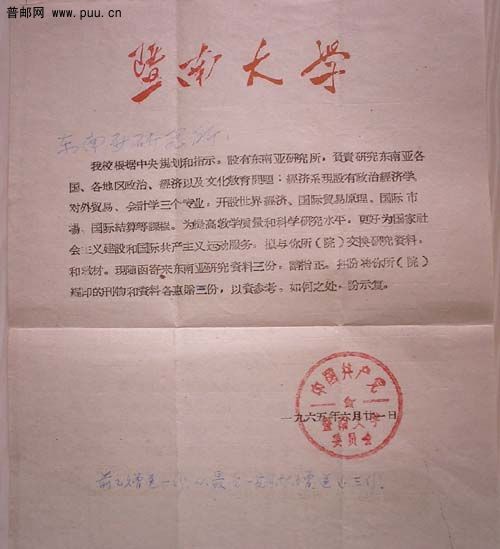 普邮网 www.puu.cn
暨南大学
东南亚研究所：
我校根据中央规划和指示，设有东南亚研究所，负责研究东南亚各
国、各地区政治、經济以及文化敎育問題；經济系現設有政治經济学、
对外貿易、会計学三个专业，开設世界經济、国际貿易原理、国际市
場、国际結算等課程。为提高敎学质量和科学研究水平，更好为国家社
会主义建設和国际共产主义运动服务，拟与你所（院）交换研究資料
和敎材。現随函寄来东南亚研究資料三份，請指正。并盼将你所（院）
編印的刊物和資料各惠賜三份，以資参考。如何之处，盼示复。
一九六五年六月廿一日
中国共产党
暨南大学
委員会